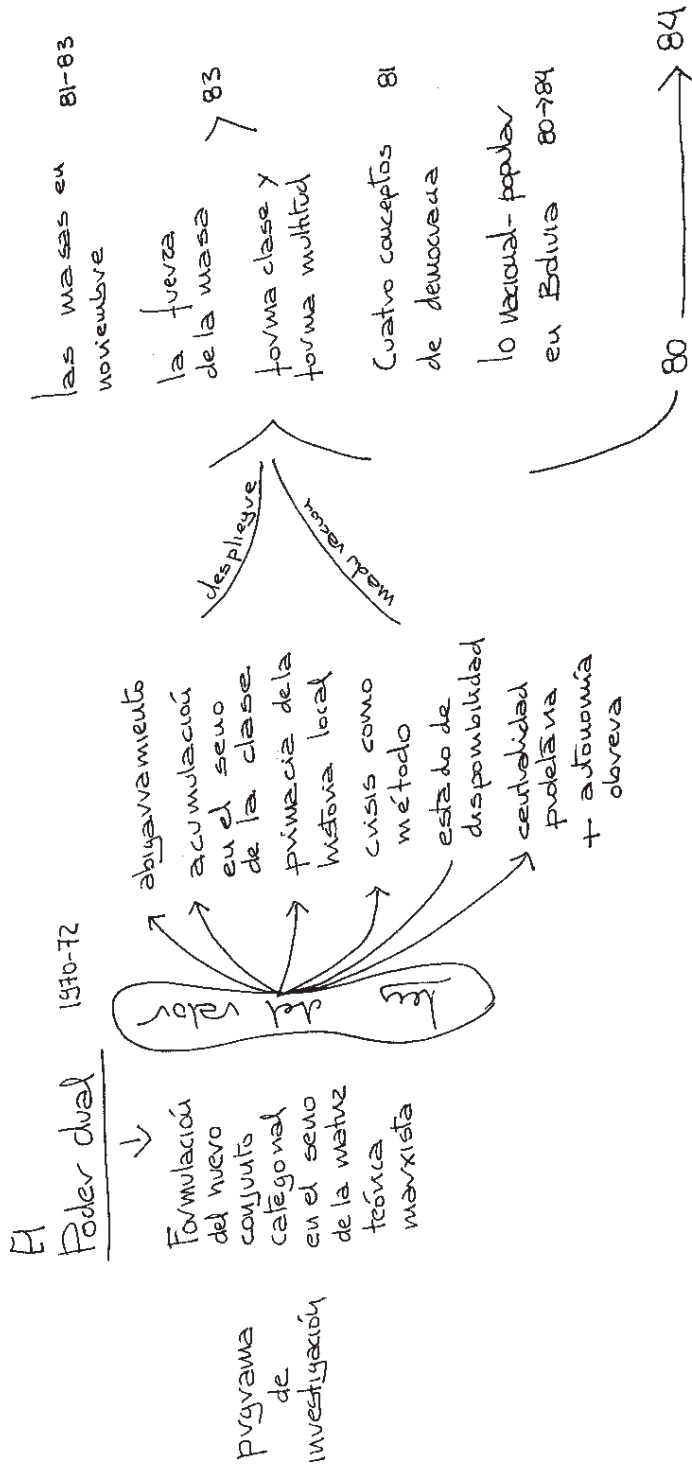 El
Poder dual
1970-72
programa
de
investigación
Formulación
del nuevo
conjunto
categorial
en el seno
de la matriz
teórica
marxista
ley
del
valor
abigarramiento
acumulación
en el seno
de la clase
primacía de la
historia local
crisis como
método
estado de
disponibilidad
centralidad
proletaria
+ autonomía
obrera
despliegue
maduración
las masas en
noviembre
81-83
la fuerza
de la masa
83
forma clase y
forma multitud
Cuatro conceptos
de democracia
81
lo nacional-popular
en Bolivia 80→84
80 → 84